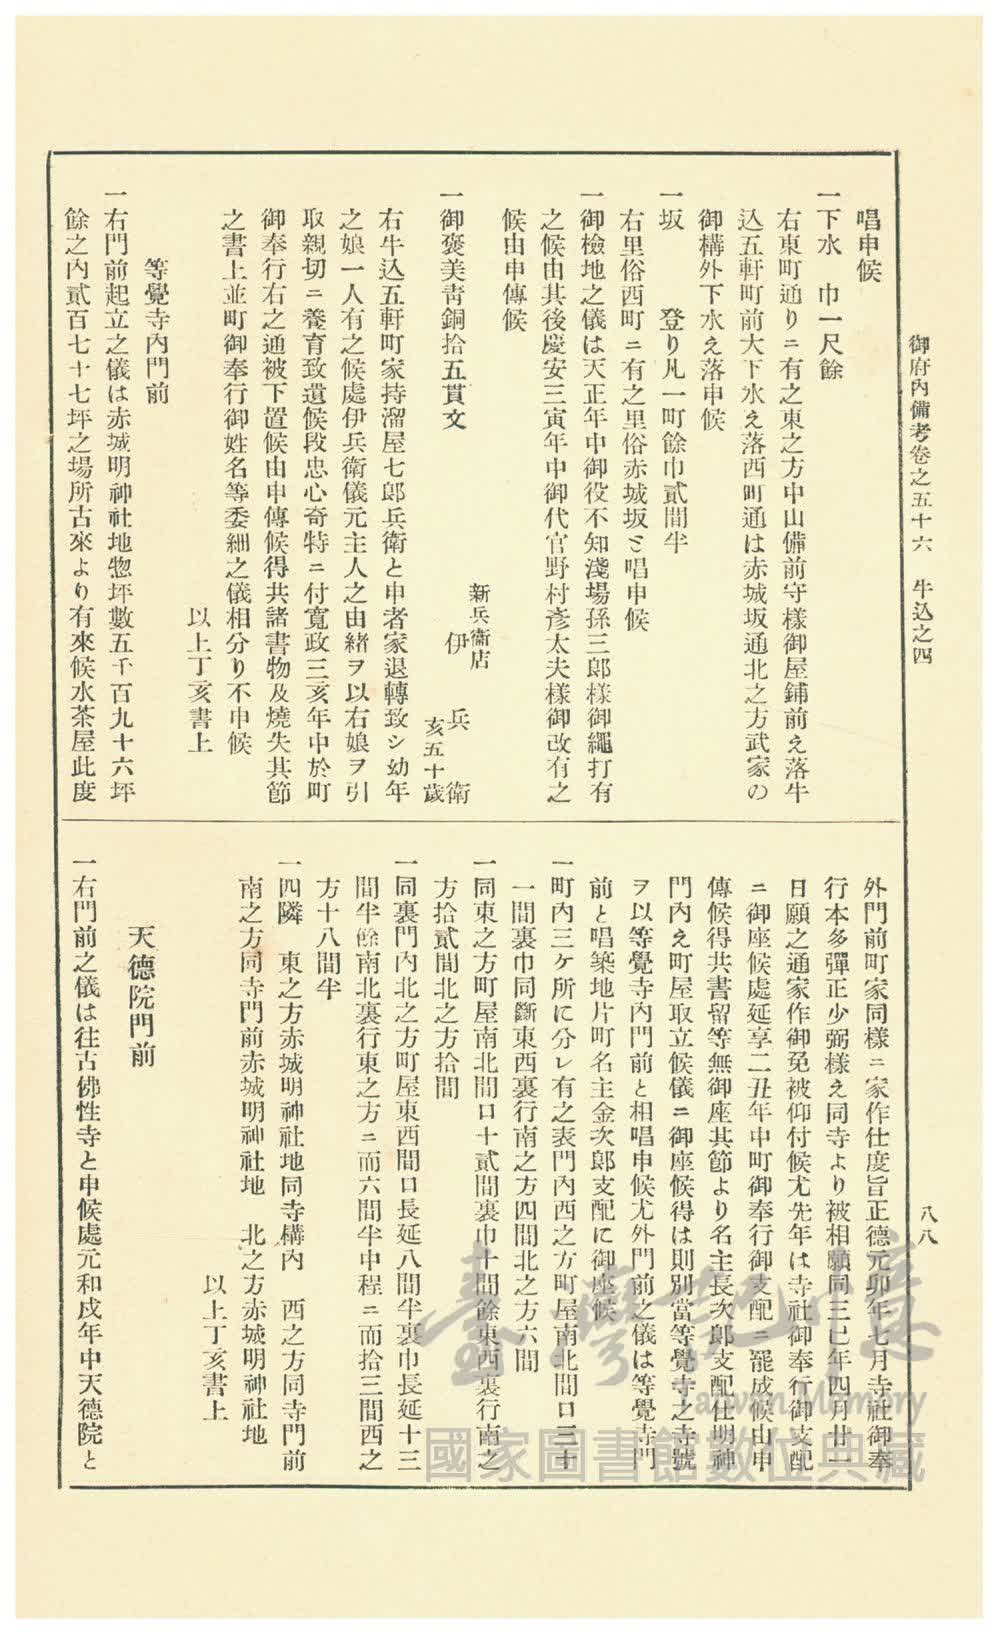 御府內備考卷之五十六　牛込之四
八八
唱申候
一下水　巾一尺餘
右東町通り二有之東之方中山備前守樣御屋鋪前え落牛
込五軒町前大下水え落西町通は赤城坂通北之方武家の
御構外下水え落申候
一坂　　登り凡一町餘巾貳間半
右里俗西町ニ有之里俗赤城坂と唱申候
一御檢地之儀は天正年中御役不知淺場孫三郎樣御繩打有
之候由其後慶安三寅年中御代官野村彥太夫樣御改有之
候由申傳候
新兵衞店
一御褒美靑銅拾五貫文　伊兵衞
亥五十歲
右牛込五軒町家持溜屋七郎兵衞と申者家退轉致シ幼年
之娘一人有之候處伊兵衞儀元主人之由緖ヲ以右娘ヲ引
取親切ニ養育致遣候段忠心奇特ニ付寬政三亥年中於町
御奉行右之通被下置候由申傳候得共諸書物及燒失其節
之書上並町御奉行御姓名等委細之儀相分り不申候
以上丁亥書上
等覺寺內門前
一右門前起立之儀は赤城明神社地惣坪數五千百九十六坪
餘之內貳百七十七坪之場所古來より有來候水茶屋此度
外門前町家同樣ニ家作仕度旨正德元卯年七月寺社御奉
行本多彈正少弼樣え同寺より被相願同三巳年四月廿一
日願之通家作御免被仰付候尤先年は寺社御奉行御支配
ニ御座候處延享二丑年中町御奉行御支配ニ罷成候由申
傳候得共書留等無御座其節より名主長次郎支配仕明神
門內え町屋取立候儀ニ御座候得は則別當等覺寺之寺號
ヲ以等覺寺內門前と相唱申候尤外門前之儀は等覺寺門
前と唱築地片町名主金次郎支配に御座候
一町內三ケ所に分レ有之表門內西之方町屋南北間口三十
一間裏巾同斷東西裏行南之方四間北之方六間
一同東之方町屋南北間口十貳間裏巾十間餘東西裏行南之
方拾貳間北之方拾間
一同裏門內北之方町屋東西間口長延八間半裏巾長延十三
間半餘南北裏行東之方ニ而六間半申程ニ而拾三間西之
方十八間半
一四隣　東之方赤城明神社地同寺構內　西之方同寺門前
南之方同寺門前赤城明神社地　北之方赤城明神社地
以上丁亥書上
天德院門前
一右門前之儀は往古佛性寺と申候處元和戌年中天德院と
臺灣記憶
Taiwan Memory
國家圖書館數位典藏